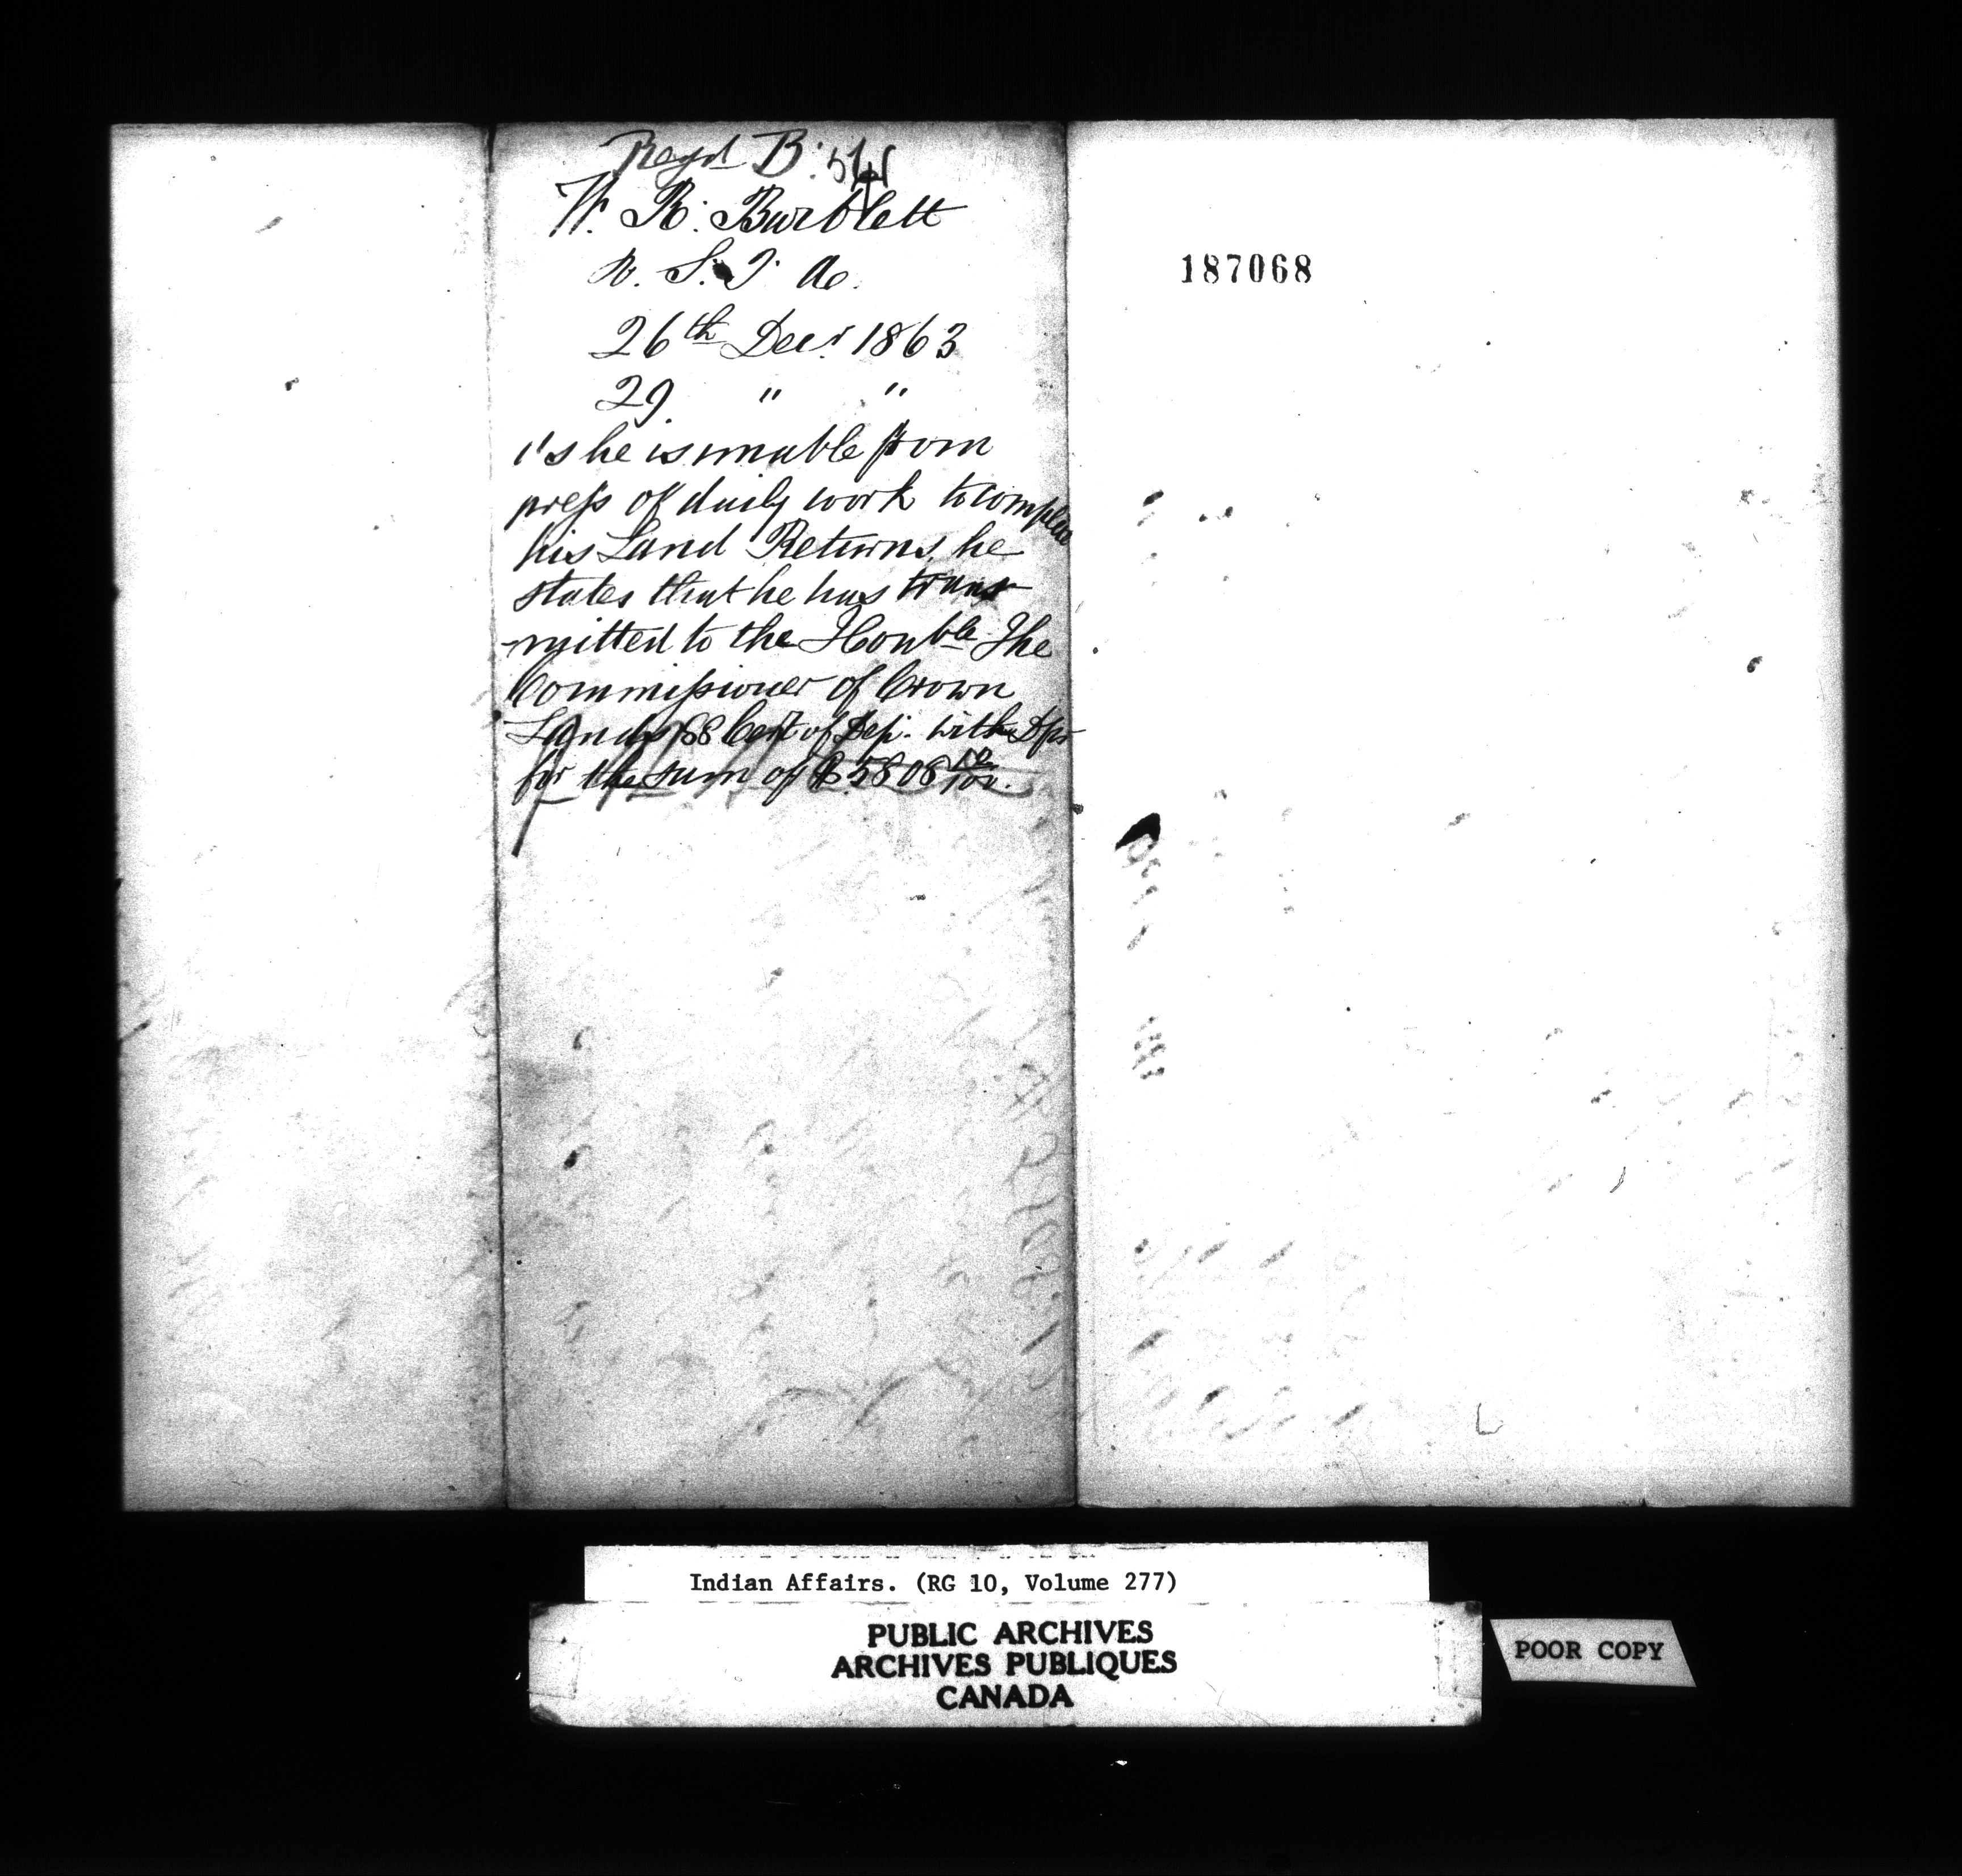 Regd B:
W. R. Bartlett
26th Decr. 1863
29. " "
As he is unable from
press of daily work to complete
his Land Returns, he
states that he has trans
-mitted to the Honble The
Commissioner of Crown
Lands 88 Cert of Dep. with Dps
for the sum of $5808
187068
Indian Affairs. (RG 10, Volume 277)
PUBLIC ARCHIVES
ARCHIVES PUBLIQUES
CANADA
POOR COPY